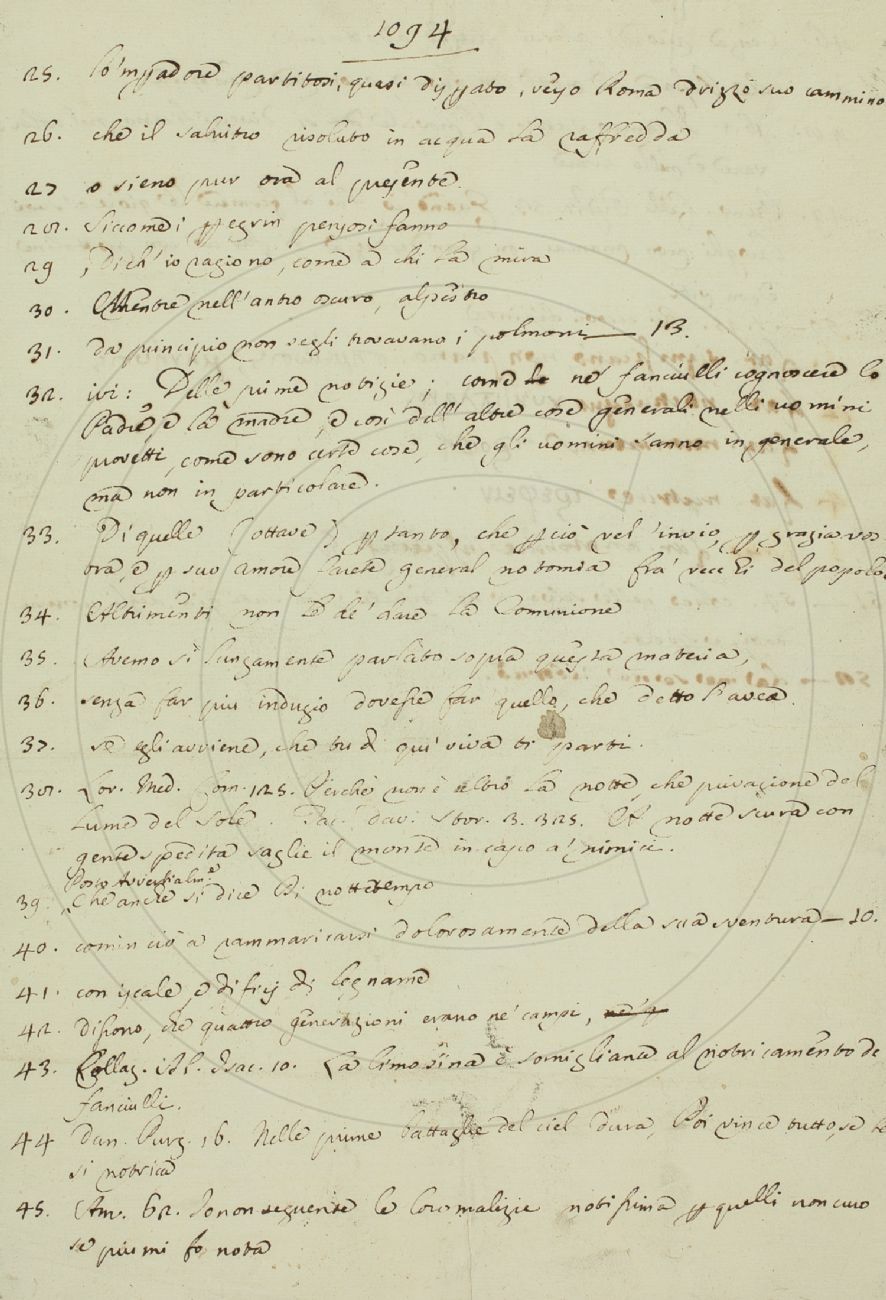 1094
25. lo 'mpadore partitosi, quasi disppato, verso Roma drizzò suo cammino
26. che il salnitro risoluto in acqua la raffredda
27 o sieno pur ora al presente.
28. Siccome i ppegrin pensosi fanno
29 , Dich' io ragiono, come a chi la mira
30. Mentre nell'antro oscuro, alpestro
31. da principio non segli trovavano i polmoni — 13.
32. ivi: Delle prime notizie; come ne' fanciulli cognoscere lo
Padre, e la madre, e così dell'altre cose generali nelli uomini
provetti, come sono certe cose, che gli uomini sanno in generale,
ma non in particolare.
33. Di quelle (ottave) pp tanto, che pp ciò vel' invio, pp grazia vos
ora, e pp suo amore farete general notomia fra' vecchi del popolo.
34. Altrimenti non le de' dare la Comunione
35. Avemo sì lungamente parlato sopra questa materia,
36. senza far più indugio dovesse far quello, che detto l'avea.
37. se egli avviene, che tu di qui viva ti parti.
38. Lor. Med. Com. 125. Perchè non è altro la notte, che privazione del
lume del Sole. Tac. Dav. Stor. 3. 325. A notte scura con
gente spedita saglie il monte in capo a' nimici.
39. Posto Avverbialm.e
Che anche si dice Di nottetempo
40. cominciò a rammaricarsi dolorosamente della sua sventura — 10.
41. con iscale, e dificj di legname
42. disono, che quattro generazioni erano ne' campi,
43. Collaz. Ab. Isac. 10. La limosina è somigliante al notricamento de
fanciulli.
44 Dan. Purg. 16. Nelle prime battaglie del ciel dura, Poi vince tutto, se be
si notrica
45. Am. 62. Io non seguente le loro malizie notissima pp quelli non curo
se più mi fo nota